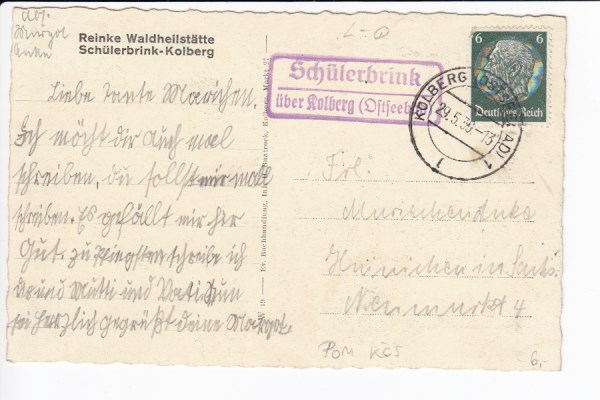 Abs.
Margot
Reinke Waldheilstätte
Schülerbrink-Kolberg
L-Q
Schülerbrink
über Kolberg (Ostseeb
KOLBERG OSTSEEBAD
29.5.39-13
1 1
6 6
Deutsches Reich
Liebe Tante Mariechen.
Ich möcht dir auch mal
schreiben, du sollst mir mal
schreiben. Es gefällt mir hier
Gut. zu Pfingsten schreibe ich
dir und Mutti und Vati
sei herzlich gegrüßt deine Margot.
W 19 — Ev. Buchhandlung, Inh.
Frl.
Hainichen in Sachs.
Neumarkt 4
POM KÖS
6,-